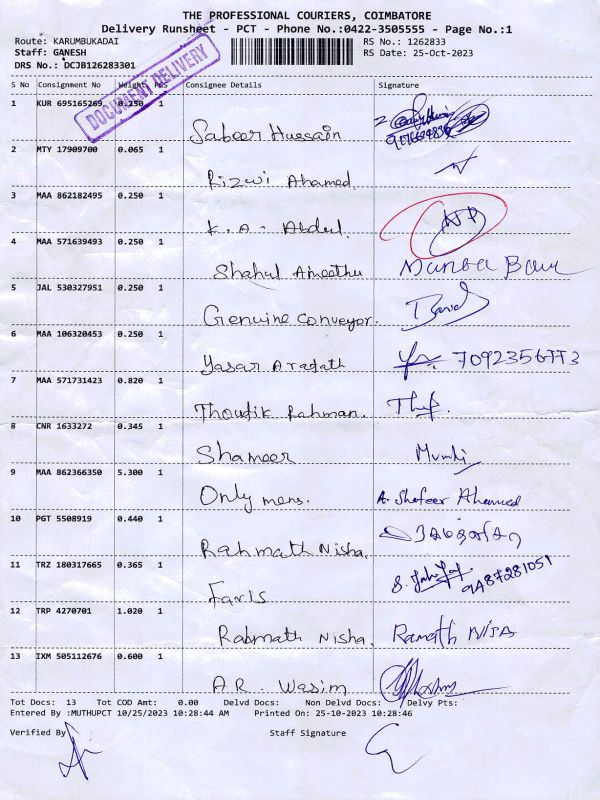 THE PROFESSIONAL COURIERS, COIMBATORE
Delivery Runsheet - PCT - Phone No.:0422-3505555 - Page No.:1
Route: KARUMBUKADAI RS No.: 1262833
Staff: GANESH RS Date: 25-Oct-2023
DRS No.: DCJB126283301
DOCUMENT DELIVERY
S No Consignment No Weight Pcs Consignee Details Signature
1 KUR 695165269 0.250 1 Sabeer Hussain
2 MTY 17909700 0.065 1 Rizwi Ahamed
3 MAA 862182495 0.250 1 K. A. Abdul
4 MAA 571639493 0.250 1 Shahul Ameethu
5 JAL 530327951 0.250 1 Genuine conveyor.
6 MAA 106320453 0.250 1 Yasar Arafath 7092356773
7 MAA 571731423 0.820 1 Thoufik Rahman.
8 CNR 1633272 0.345 1 Shameer
9 MAA 862366350 5.300 1 Only mens. A. Shafeer Ahamed
10 PGT 5508919 0.440 1 Rahmath Nisha.
11 TRZ 180317665 0.365 1 Faris 9487281051
12 TRP 4270701 1.020 1 Rabmath Nisha. Ramath NISA
13 IXM 505112676 0.600 1 A.R. Wasim
Tot Docs: 13 Tot COD Amt: 0.00 Delvd Docs: Non Delvd Docs: Delvy Pts:
Entered By :MUTHUPCT 10/25/2023 10:28:44 AM Printed On: 25-10-2023 10:28:46
Verified By Staff Signature